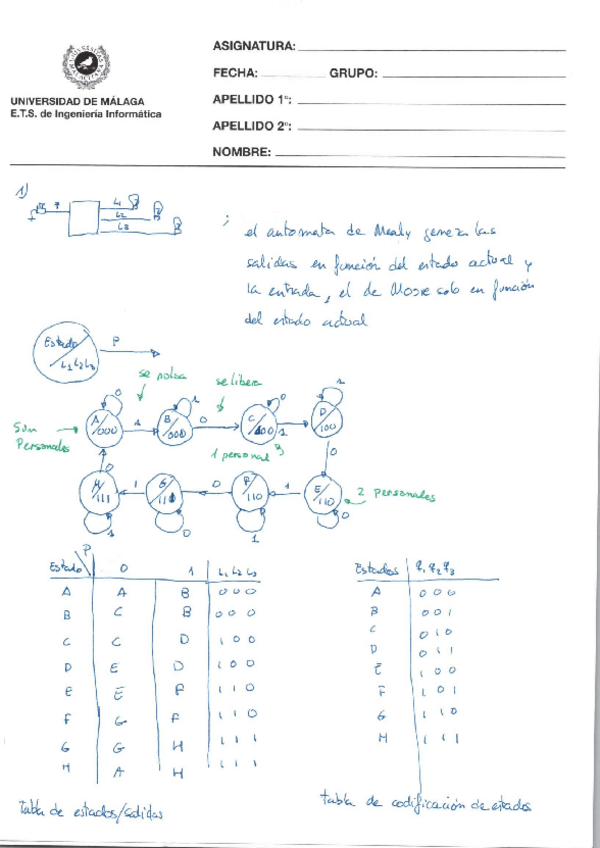 ASIGNATURA:
FECHA: GRUPO:
UNIVERSIDAD DE MÁLAGA
E.T.S. de Ingeniería Informática
APELLIDO 1º:
APELLIDO 2º:
NOMBRE:
1)
P
L1
L2
L3
el automata de Mealy genera las
salidas en función del estado actual y
la entrada, el de Moore solo en función
del estado actual
Estado P
L1 L2 L3
se pulsa
se libera
0 1 0 1
A/000 1 B/000 0 C/100 1 D/100
1 personal
0 0
H/111 1 G/111 0 F/110 1 E/110
2 personales
1 0 1 0
Estado P 0 1 L1 L2 L3
A A B 0 0 0
B C B 0 0 0
C C D 1 0 0
D E D 1 0 0
E E F 1 1 0
F G F 1 1 0
G G H 1 1 1
H A H 1 1 1
tabla de estados/salidas
Estados q1 q2 q3
A 0 0 0
B 0 0 1
C 0 1 0
D 0 1 1
E 1 0 0
F 1 0 1
G 1 1 0
H 1 1 1
tabla de codificación de estados